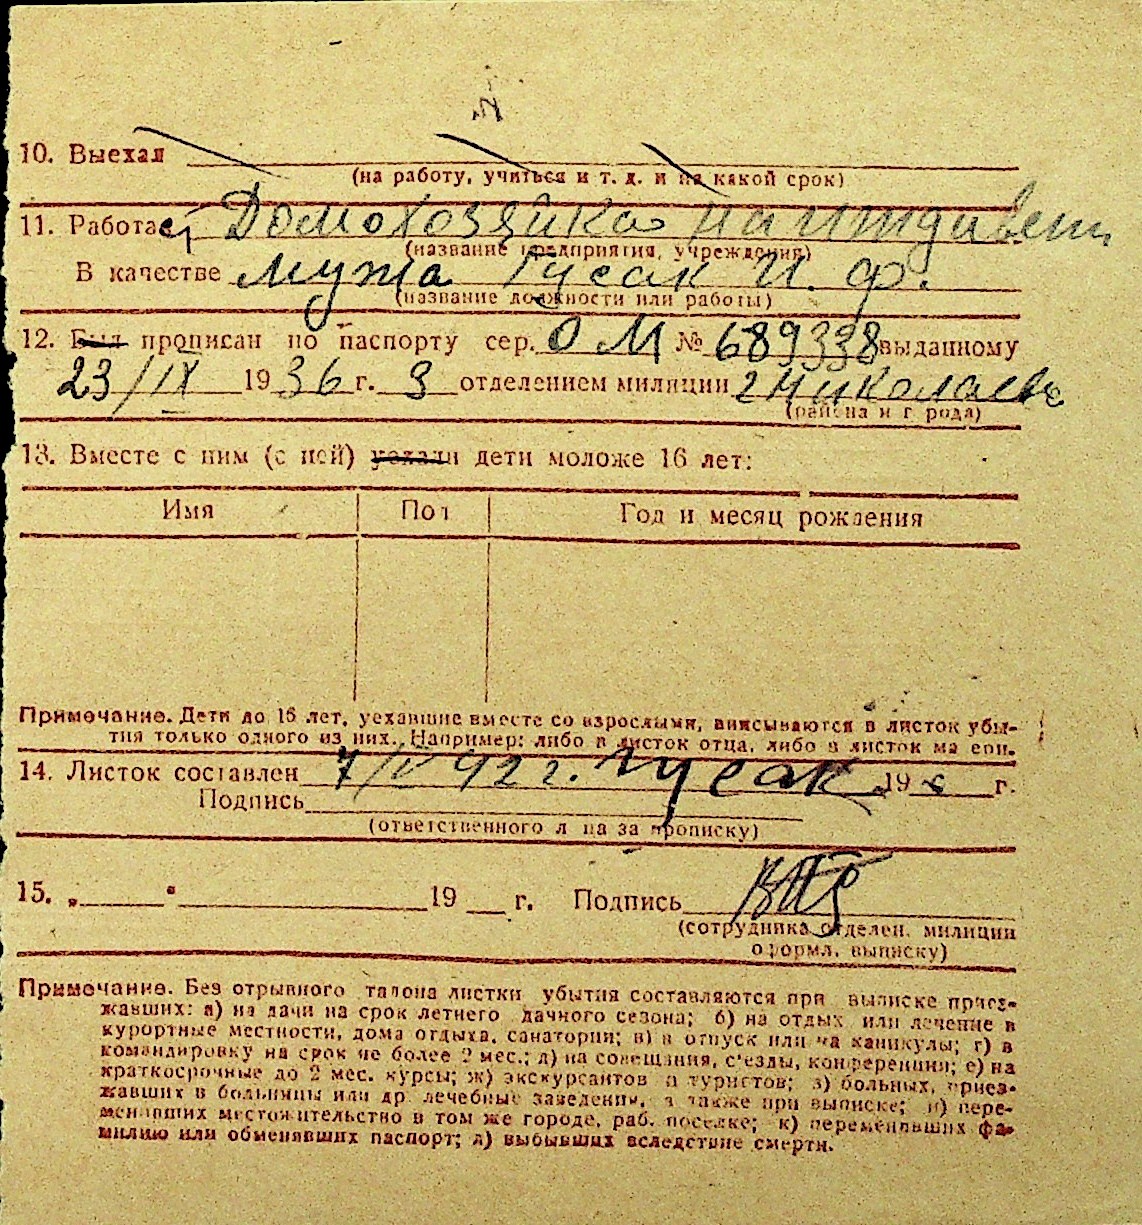 10. Выехал
(на работу, учиться и т. д. и на какой срок)
11. Работает Домохозяйка на иждивен.
(название предприятия, учреждения)
В качестве мужа Гусак И. Ф.
(название должности или работы)
12. Был прописан по паспорту сер. ОМ № 689338 выданному
23/IX 1936 г. 3 отделением милиции г Николаев
(района и г рода)
13. Вместе с ним (с ней) уехали дети моложе 16 лет:
Имя Пол Год и месяц рождения
Примечание. Дети до 16 лет, уехавшие вместе со взрослыми, вписываются в листок убы-
тия только одного из них. Например: либо в листок отца, либо в листок ма ери.
14. Листок составлен 7/V 42 г. Гусак 19 г.
Подпись
(ответственного л ца за прописку)
15. „ “ 19 г. Подпись
(сотрудника отделен. милиции
оформл. выписку)
Примечание. Без отрывного талона листки убытия составляются при выписке приез-
жавших: а) на дачи на срок летнего дачного сезона; б) на отдых или лечение в
курортные местности, дома отдыха, санатории; в) в отпуск или на каникулы; г) в
командировку на срок не более 2 мес.; д) на совещания, с'езды, конференции; е) на
краткосрочные до 2 мес. курсы; ж) экскурсантов и туристов; з) больных, приез-
жавших в больницы или др. лечебные заведения, а также при выписке; и) пере-
менивших местожительство в том же городе, раб. поселке; к) переменивших фа-
милию или обменявших паспорт; л) выбывших вследствие смерти.